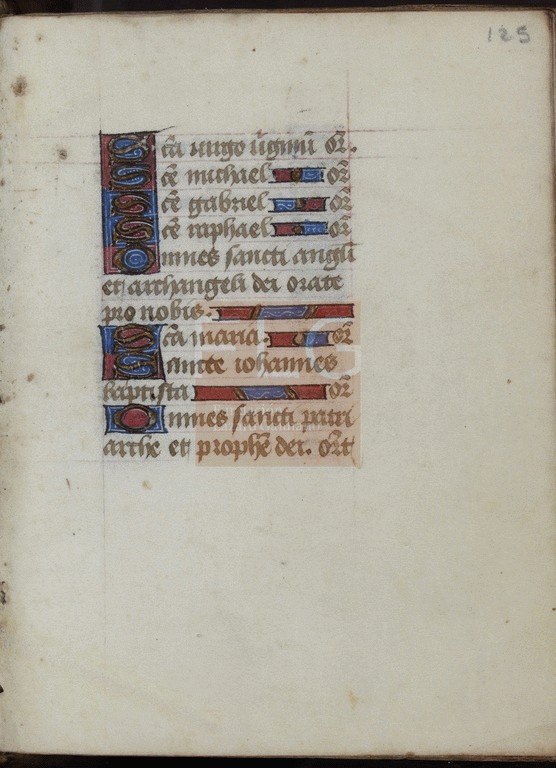 125
Sca uirgo uginũ or̃.
Sce michael or̃
Sce gabriel or̃
Sce raphael or̃
Omnes sancti angli
et archangeli dei orate
pro nobis.
Sca maria. or̃
Sancte iohannes
baptista or̃
Omnes sancti patri
arche et prophe dei. ort